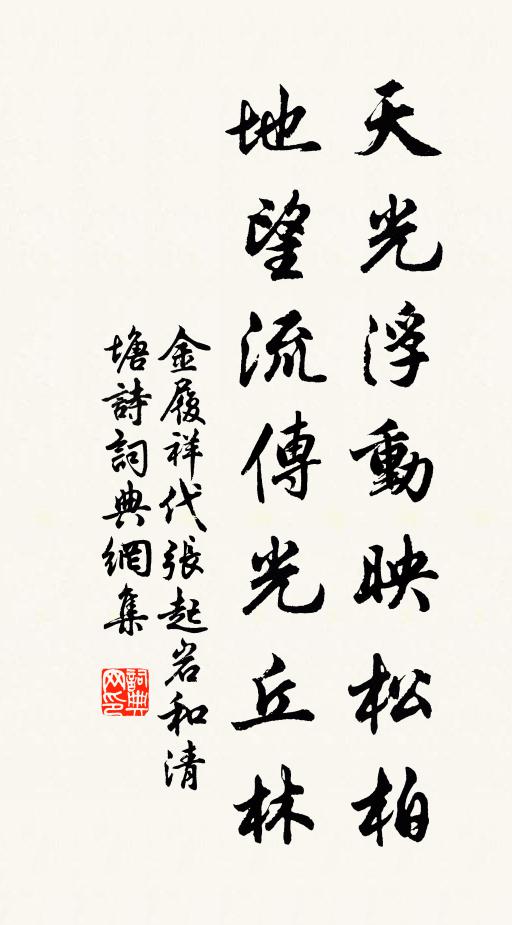 天光浮動映松柏
地望流傳光丘林
金履祥代張起岩和清
塘詩詞典網集
詞典
网印